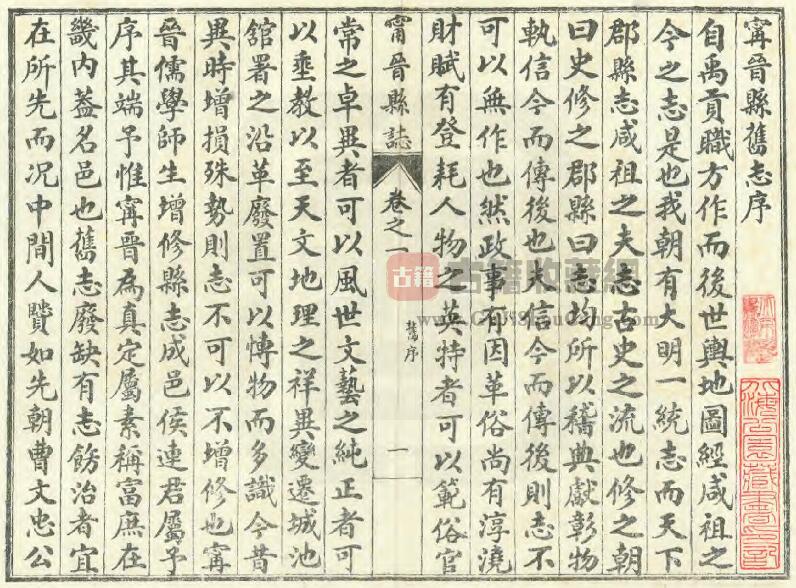 甯晉縣舊志序
自禹貢職方作而後世輿地圖經咸祖之
今之志是也我朝有大明一統志而天下
郡縣志咸祖之夫志古史之流也修之朝
曰史修之郡縣曰志均所以稽典獻彰物
執信今而傳後也夫信今而傳後則志不
可以無作也然政事有因革俗尚有淳澆
財賦有登耗人物之英特者可以範俗官
甯晉縣誌
卷之一
舊序
一
常之卓異者可以風世文藝之純正者可
以垂教以至天文地理之祥異變遷城池
舘署之沿革廢置可以愽物而多識今昔
異時增損殊勢則志不可以不增修也甯
晉儒學師生增修縣志成邑侯連君屬予
序其端予惟甯晉為真定屬素稱富庶在
畿內葢名邑也舊志廢缺有志飭治者宜
在所先而况中間人贒如先朝曹文忠公
古籍
古籍收藏網